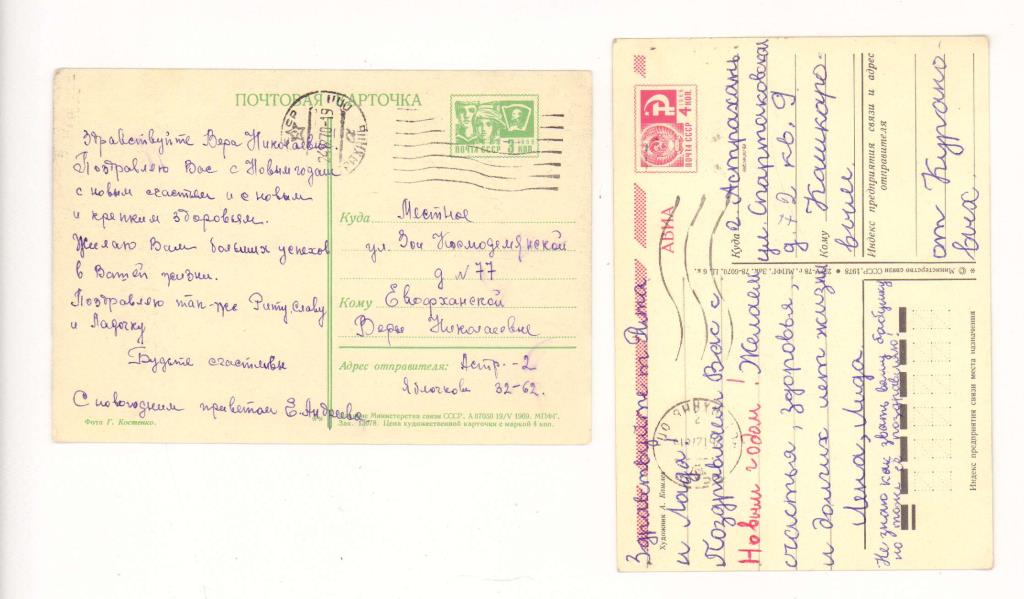 ПОЧТОВАЯ КАРТОЧКА
Здравствуйте Вера Николаевна
Поздравляю Вас с Новым годом
с новым счастьем и с новым
и крепким здоровьем.
Желаю Вам больших успехов
в Вашей жизни.
Поздравляю так-же Риту, Славу
и Ладочку
Будьте счастливы
С новогодним приветом Е. Андреева
Фото Г. Костенко.
ПОЧТА СССР 3 коп
Куда Местное
ул. Зои Космодемянской
д N 77
Кому
Вере Николаевне
Адрес отправителя: Астр.-2
Яблочкова 32-62.
Министерства связи СССР. А 07050 19/V 1969. МПФГ.
Зак. Цена художественной карточки с маркой 4 коп.
ПОЧТА СССР 4 КОП.
АВИА
Здравствуйте Рита
и Лада
Поздравляем Вас с
Новым годом! Желаем
счастья, здоровья,
и долгих лет жизни
Лена, Лида
Не знаю как звать вашу бабушку
но тоже её поздравляю.
Художник А.
Куда г. Астрахань
ул. Спартаковская
д. 72 кв. 9
Кому Кашкаро-
вычее
Индекс предприятия связи и адрес
отправителя
от Курано-
вых.
© Министерство связи СССР, 1978
Индекс предприятия связи места назначения